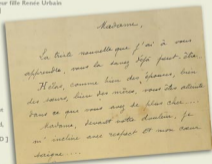 leur fille Renée Urbain
Madame,
La triste nouvelle que j'ai à vous
apprendre, vous la savez déjà peut-être.
Hélas, comme bien des épouses, bien
des sœurs, bien des mères, vous êtes atteinte
dans ce que vous avez de plus cher....
Madame, devant votre douleur, je
m'incline avec respect et mon cœur
saigne....